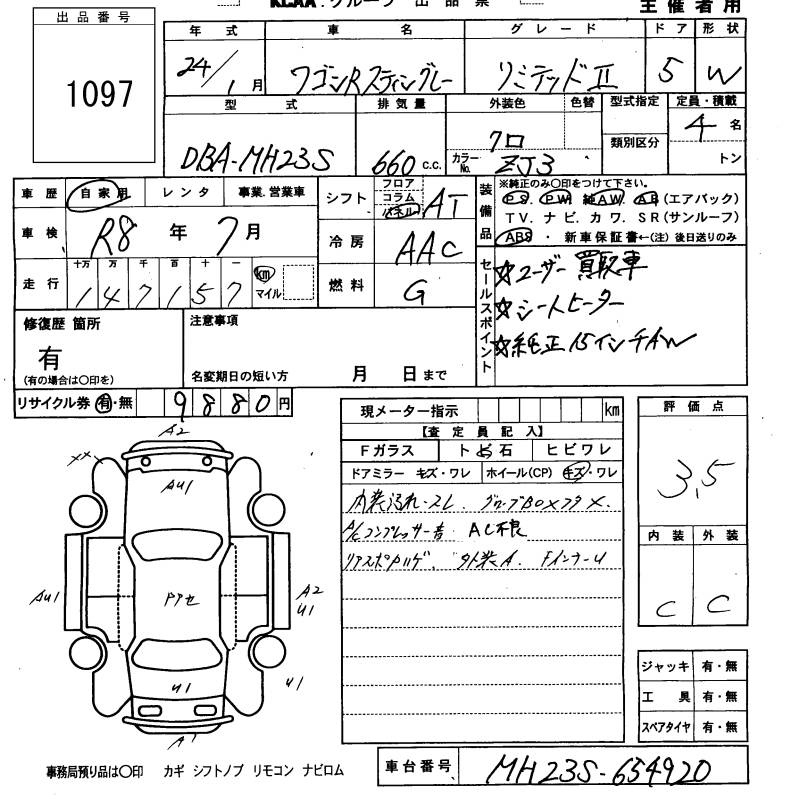 出品番号
1097
主催者用
年 式 車 名 グレード ドア 形状
24/1月 ワゴンRスティングレー リミテッドII 5 W
型 式 排気量 外装色 色替 型式指定 定員・積載
DBA-MH23S 660 c.c. クロ カラーNo. ZJ3 類別区分 4 名
トン
車歴 自家用 レンタ 事業.営業車
車検 R8 年 7 月
走行 十万 万 千 百 十 一
147157 km マイル
シフト フロア コラム パネル AT
冷房 AAC
燃料 G
装備品
※純正のみ○印をつけて下さい。
PS. PW. 純AW. AB(エアバック)
TV. ナビ. カワ. SR(サンルーフ)
ABS ・ 新車保証書←(注) 後日送りのみ
セールスポイント
☆ユーザー買取車
☆シートヒーター
☆純正15インチAW
修復歴 箇所
有
(有の場合は○印を)
注意事項
名変期日の短い方 月 日まで
リサイクル券 有・無 9880円
現メーター指示 km
【査定員記入】
Fガラス トビ石 ヒビワレ
ドアミラー キズ・ワレ ホイール(CP) キズ・ワレ
内装汚れ・スレ. グローブBOXフタ×.
A/Cコンプレッサー音 AC不良
外装A. FインナーU
評価点
3.5
内装 外装
C C
ジャッキ 有・無
工具 有・無
スペアタイヤ 有・無
A2
××
AU1
AU1
A2
U1
U1
U1
A1
事務局預り品は○印 カギ シフトノブ リモコン ナビロム
車台番号 MH23S-654920